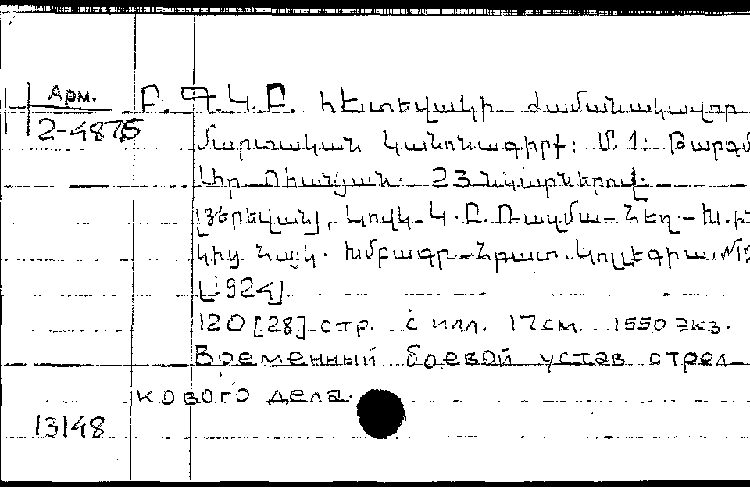 Арм.
2-4875
Բ. Գ. Կ. Բ. հետեվակի ժամանակավոր
մարտական կանոնագիրք: Մ. 1: Թարգմ
Լիր Ոհանյան. 23 նկարներով.
[Յերեվան], Կովկ. Կ. Բ. Ռազմա-Հեղ. Խ.
կից Հայկ. Խմբագր-Հրատ. Կոլեգիա, №
[1924]
120 [28] стр. с илл. 17 см. 1550 экз.
Временный боевой устав стрел-
кового дела.
13148